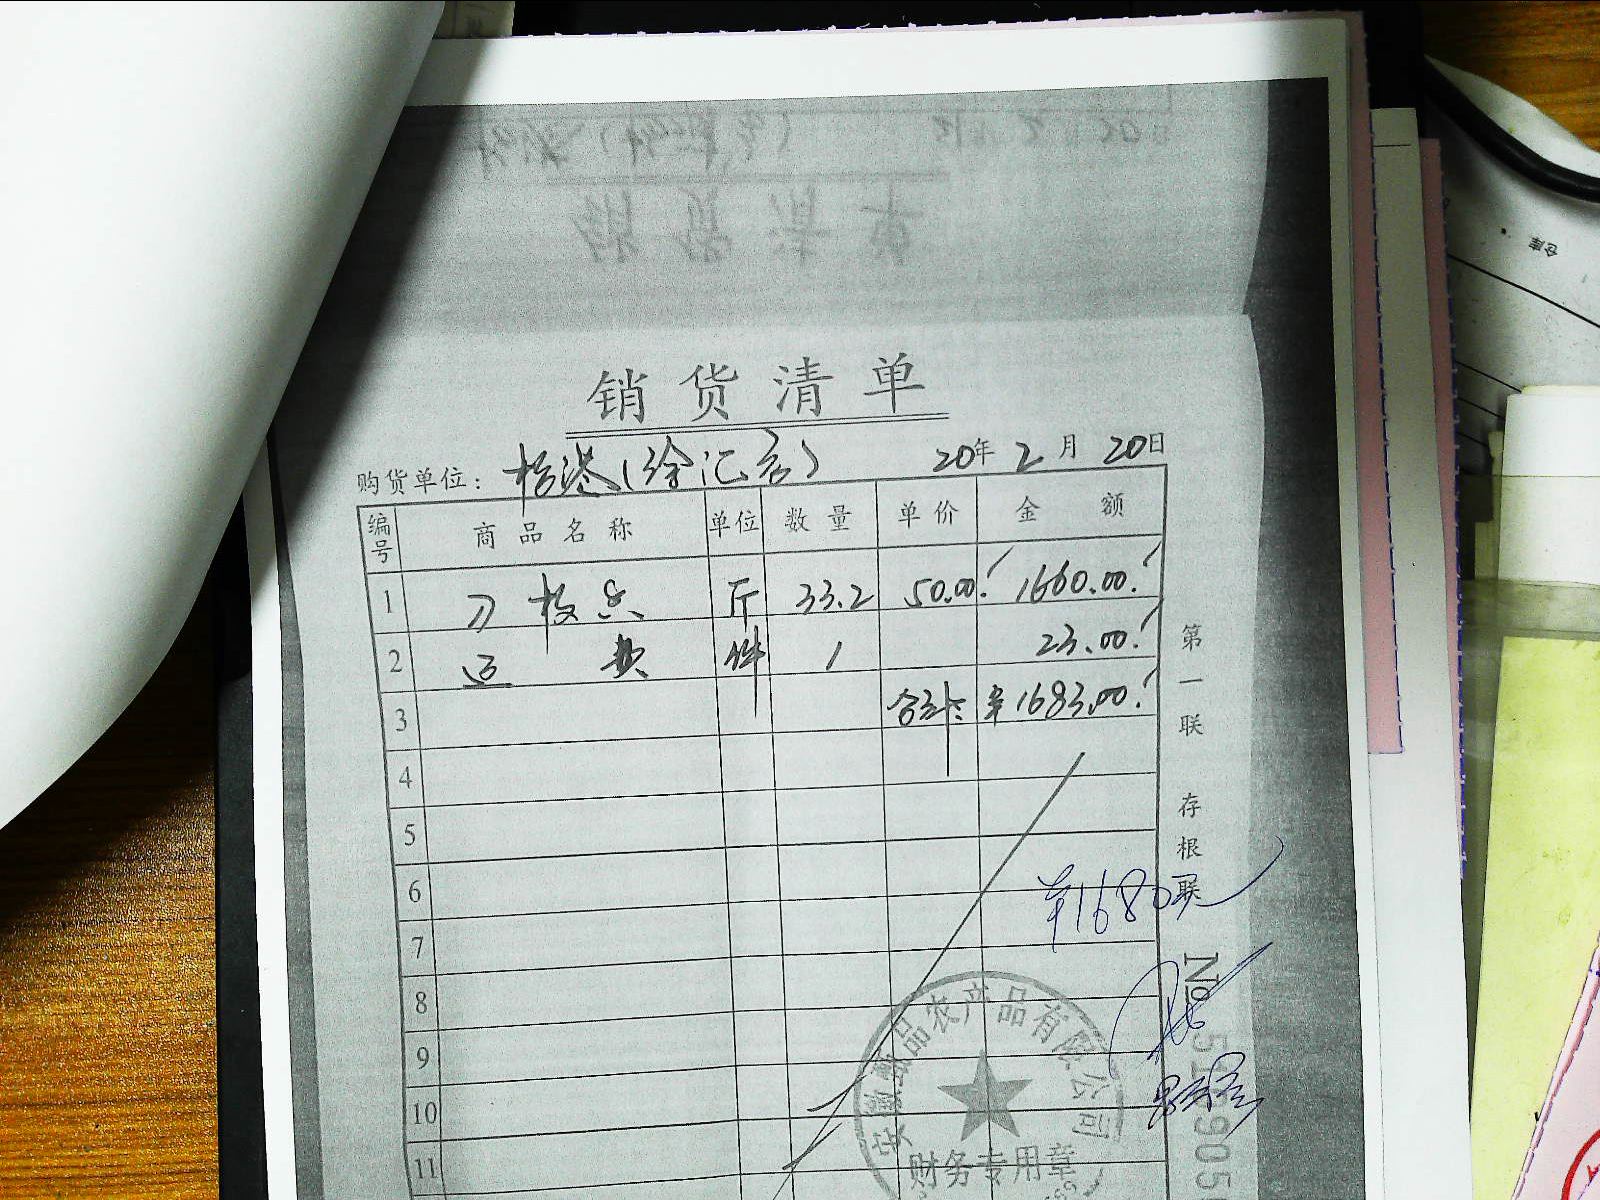 销货清单
购货单位: 20年2月20日
编号 商品名称 单位 数量 单价 金额
1 刀板香 斤 33.2 50.00 1660.00
2 运费 件 1 23.00
3 合计: ¥1683.00
4
5
6
7
8
9
10
11
第一联 存根联
¥1680
No
农产品有限公司
财务专用章
仓库